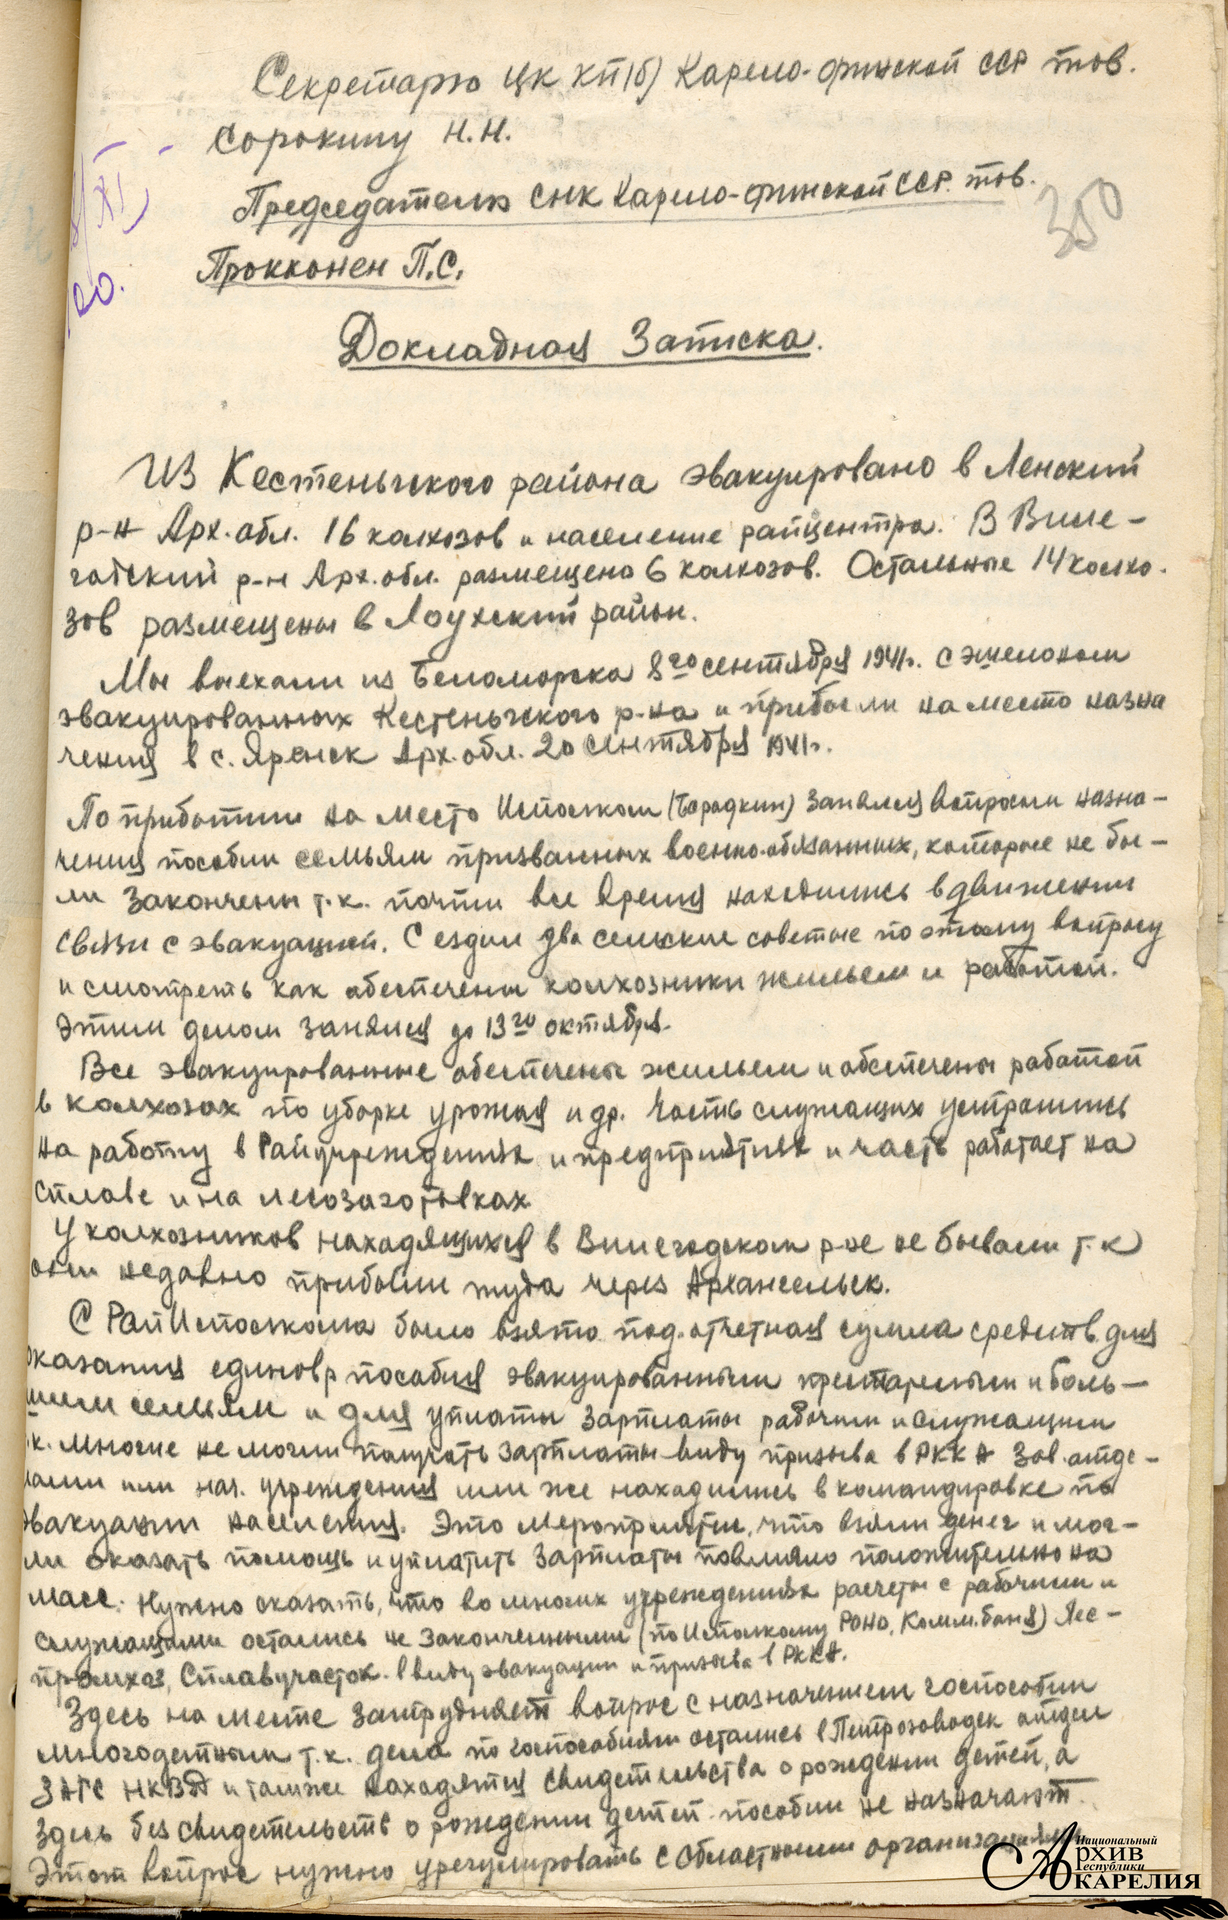 Секретарю ЦК КП(б) Карело-финской ССР тов.
Сорокину Н.Н.
Председателю СНК Карело-финской ССР. тов.
Прокконен П.С.
XI
20.
350
Докладная Записка.
Из Кестеньгского района эвакуировано в Ленский
р-н Арх. обл. 16 колхозов и население райцентра. В Виле-
годский р-н Арх. обл. размещено 6 колхозов. Остальные 14 колхо-
зов размещены в Лоухский район.
Мы выехали из Беломорска 8го сентября 1941г. с эшелоном
эвакуированных Кестеньгского р-на и прибыли на место назна
чения в с. Яренск Арх. обл. 20 сентября 1941г.
По прибытии на место Исполком (Бородкин) занялся вопросом назна-
чения пособии семьям призванных военно-обязанных, которые не бы-
ли закончены т.к. почти все время находились в движении
связи с эвакуацией. С ездил два сельские советые по этому вопросу
и смотреть как обеспечены колхозники жильем и работой.
Этим делом занялся до 13го октября.
Все эвакуированные обеспечены жильем и обеспечены работой
в колхозах по уборке урожая и др. Часть служащих устроились
на работу в Райучреждениях и предприятиях и часть работает на
сплаве и на лесозаготовках
У колхозников находящихся в Вилегодском р-не не бывали т.к
они недавно прибыли туда через Архангельск.
С РайИсполкома было взято под.отчетная сумма средств для
оказания единовр пособия эвакуированным престарелым и боль-
шим семьям и для уплаты зарплаты рабочим и служащим
т.к. многие не могли получать зарплаты ввиду призыва в РККА зав. отде-
лами или нач. учреждения или же находились в командировке по
эвакуации населения. Это мероприятии, что взяли денег и мог-
ли оказать помощь и уплатить зарплаты повлияло положительно на
масс. Нужно сказать, что во многих учреждениях расчеты с рабочими и
служащими остались не законченными (по Исполкому РОНО, Комм. баня) Лес-
промхоз, Сплавучасток. ввиду эвакуации и призыва в РККА.
Здесь на месте затрудняет вопрос с назначением госпособии
многодетным т.к. дела по госпособиям остались в Петрозаводск отдел
ЗАГС НКВД и там же находятся свидетельства о рождении детей, а
здесь без свидетельств о рождении детей пособии не назначают.
Этот вопрос нужно урегулировать с Областными организациями
Национальный
Архив
Республики
Карелия